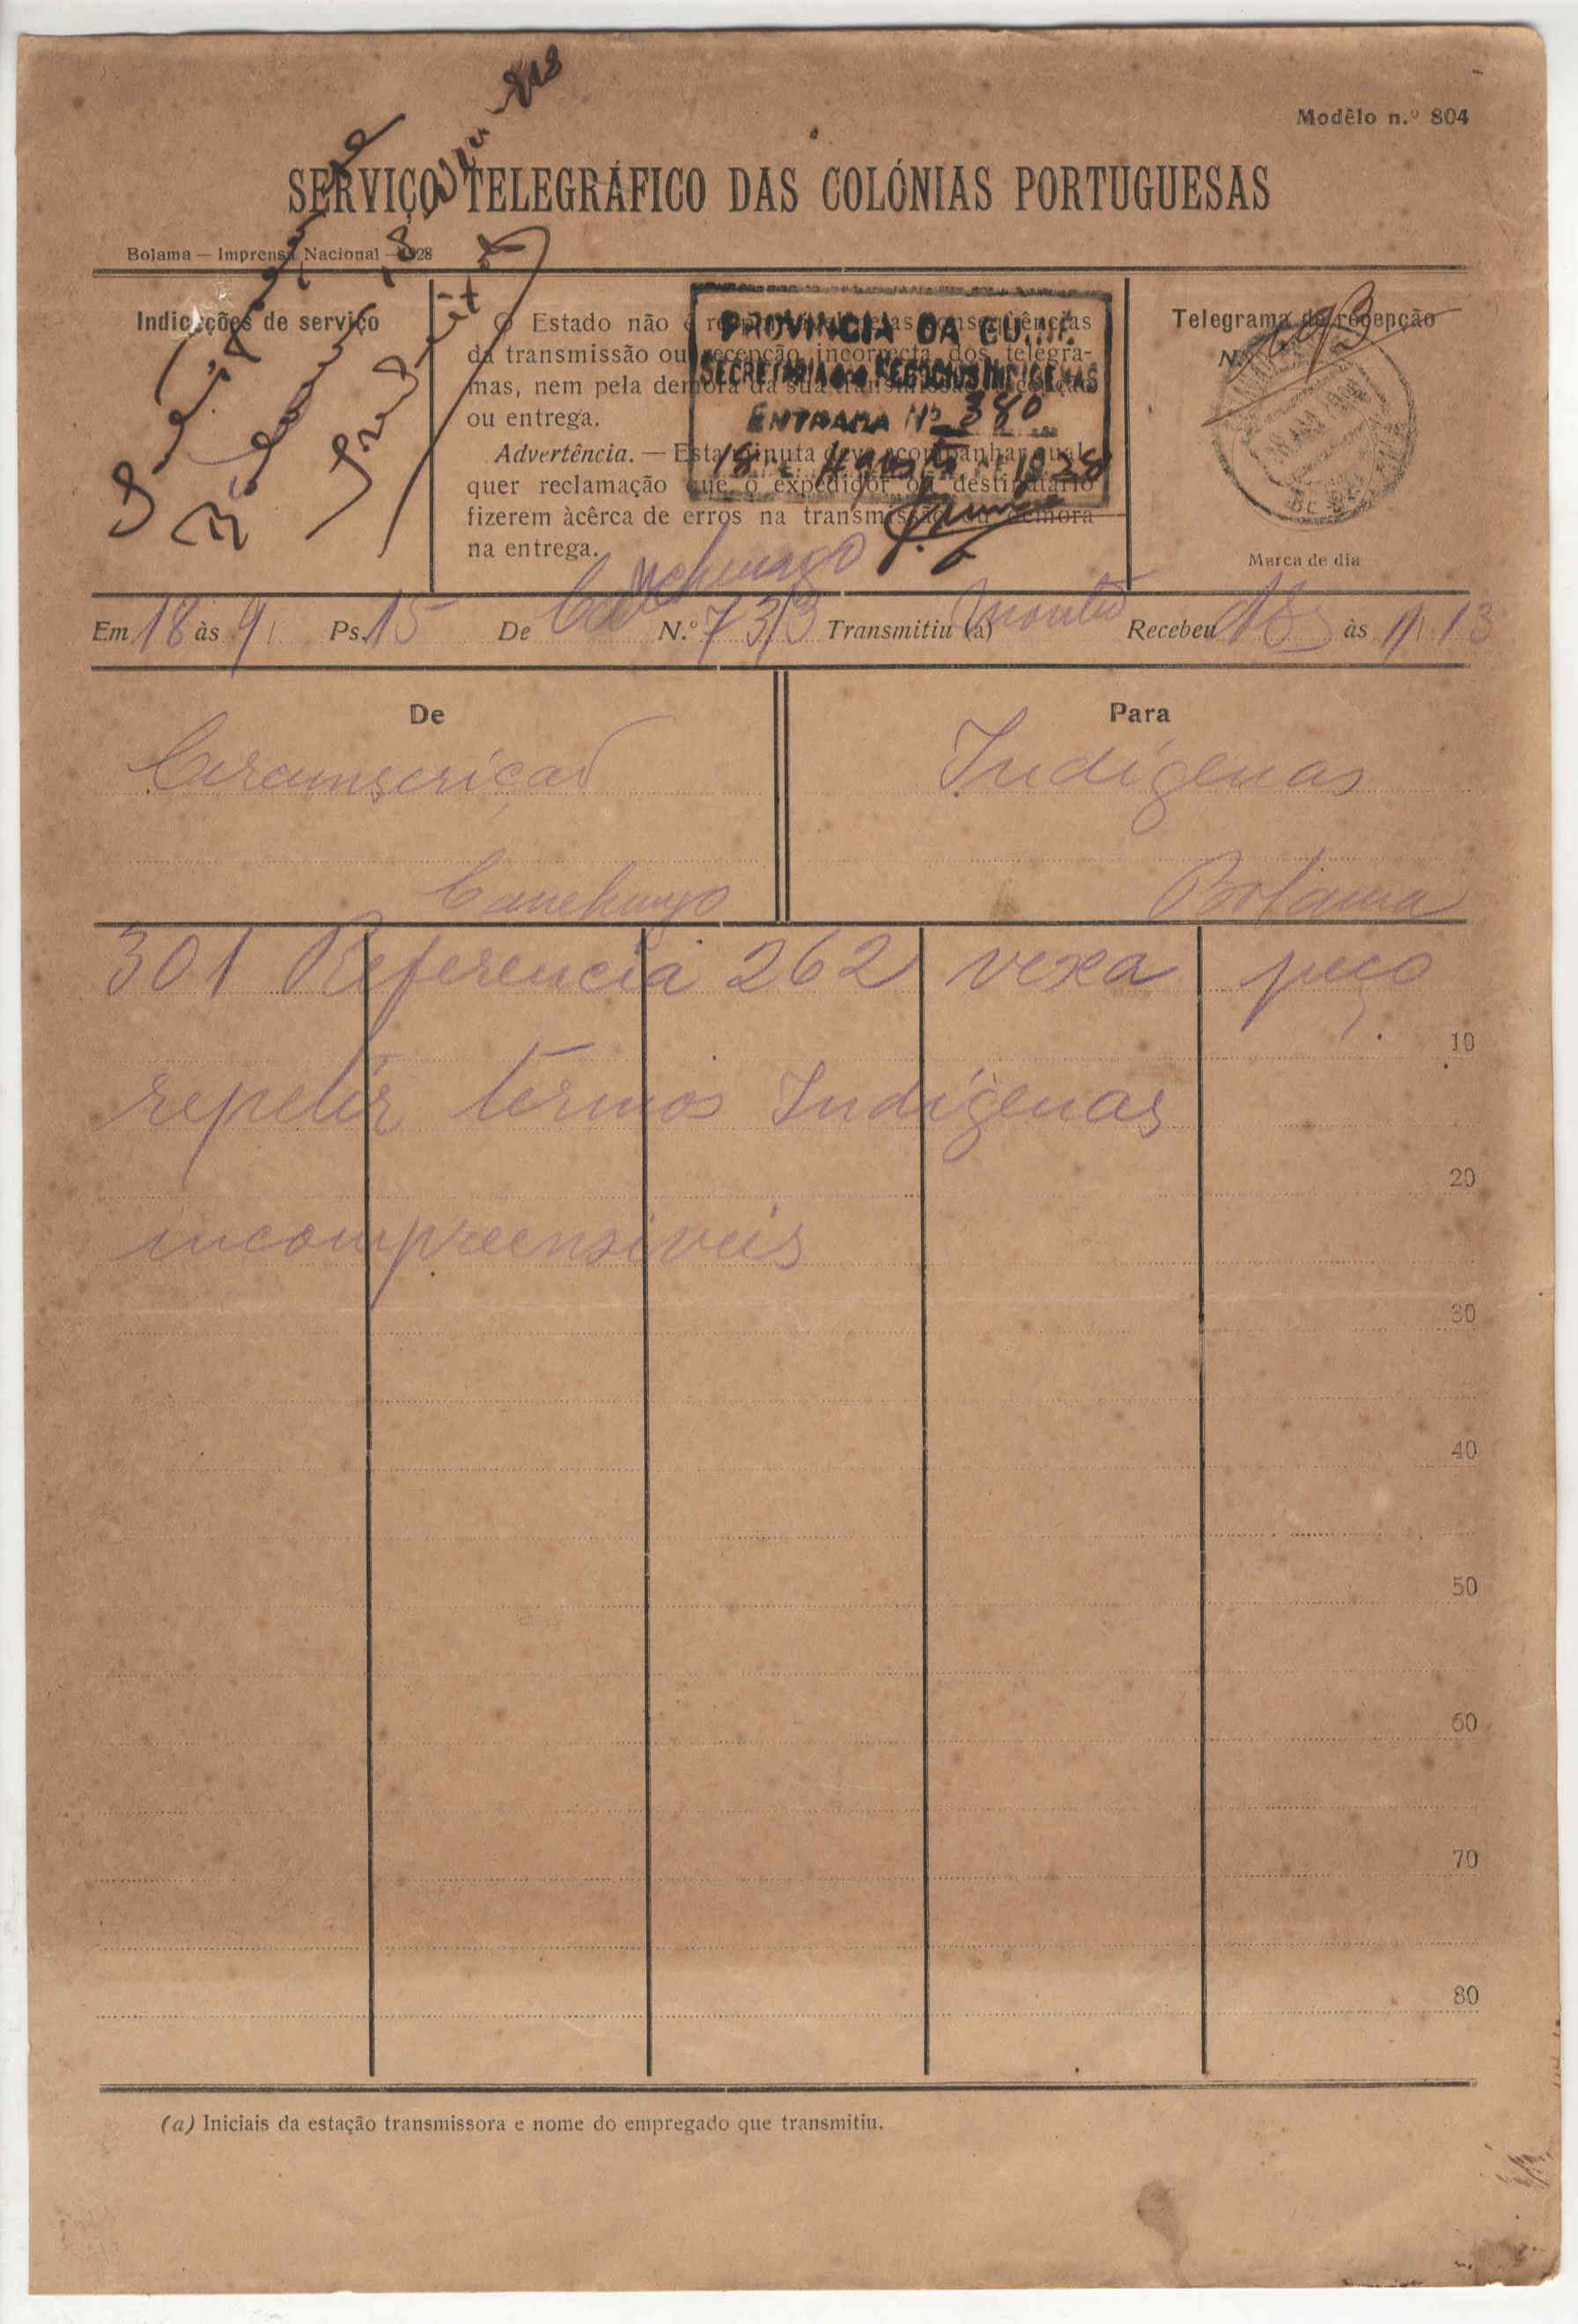 Modêlo n.º 804
SERVIÇO TELEGRÁFICO DAS COLÓNIAS PORTUGUESAS
Bolama — Imprensa Nacional — 1928
Indicações de serviço
O Estado não é responsável pelas conseqüências
da transmissão ou recepção incorrecta dos telegra-
mas, nem pela demora da sua transmissão, recepção
ou entrega.
Advertência. — Esta minuta deve acompanhar qual-
quer reclamação que o expedidor ou destinatário
fizerem àcêrca de erros na transmissão ou demora
na entrega.
PROVINCIA DA GUINÉ
SECRETARIA DOS NEGOCIOS INDIGENAS
ENTRADA Nº 380
18 de Agosto de 1928
Telegrama de recepção
N.º
Marca de dia
Em 18 às 9 Ps. 15 De Canchungo N.º 73/3 Transmitiu (a) Recebeu às 11 13
De
Circumscriçao
Canchungo
Para
Indígenas
Bolama
301 Referencia 262 vexa peço
10
repetir termos Indígenas
20
incompreensiveis
30
40
50
60
70
80
(a) Iniciais da estação transmissora e nome do empregado que transmitiu.